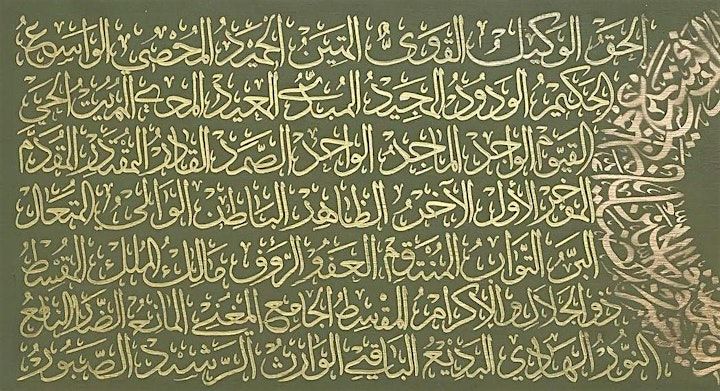 الحق الوكيل القوي المتين الحميد المحصي الواسع
الحكيم الودود المجيد المبدئ المعيد المحيي المميت الحي
القيوم الواجد الماجد الواحد الصمد القادر المقتدر المقدم
المؤخر الأول الآخر الظاهر الباطن الوالي المتعال
البر التواب المنتقم العفو الرؤوف مالك الملك المقسط
ذو الجلال والإكرام المقسط الجامع المغني المانع الضار النافع
النور الهادي البديع الباقي الوارث الرشيد الصبور